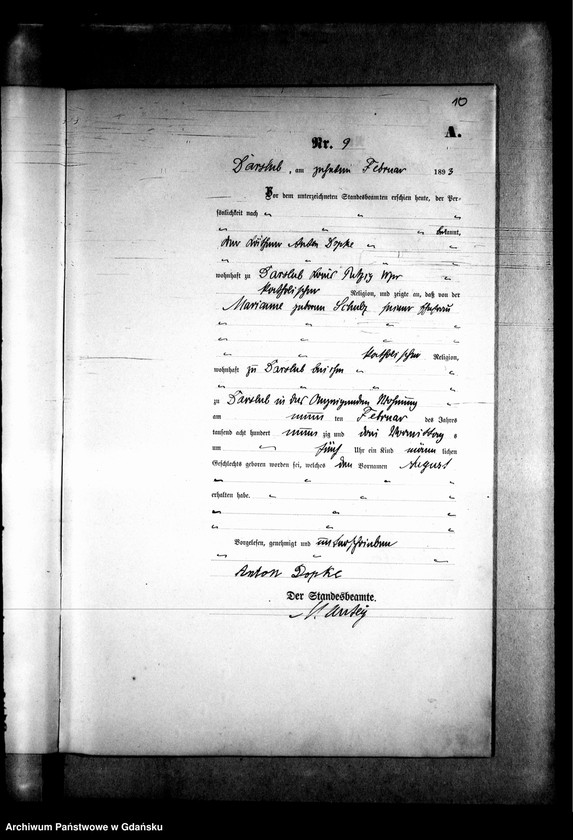 10
A.
Nr. 9
Darslub, am zehnten Februar 1893
Vor dem unterzeichneten Standesbeamten erschien heute, der Per-
sönlichkeit nach
bekannt,
der Anton Dopke
wohnhaft zu Darslub Kreis Putzig Wpr
katholischer Religion, und zeigte an, daß von der
Marianne geboren Schulz seiner Ehefrau
katholischer Religion,
wohnhaft zu Darslub bei ihm
zu Darslub in des Anzeigenden Wohnung
am neun ten Februar des Jahres
tausend acht hundert neun zig und drei Vormittag s
um fünf Uhr ein Kind männ lichen
Geschlechts geboren worden sei, welches den Vornamen August
erhalten habe.
Vorgelesen, genehmigt und unterschrieben
Anton Dopke
Der Standesbeamte.
Archiwum Państwowe w Gdańsku